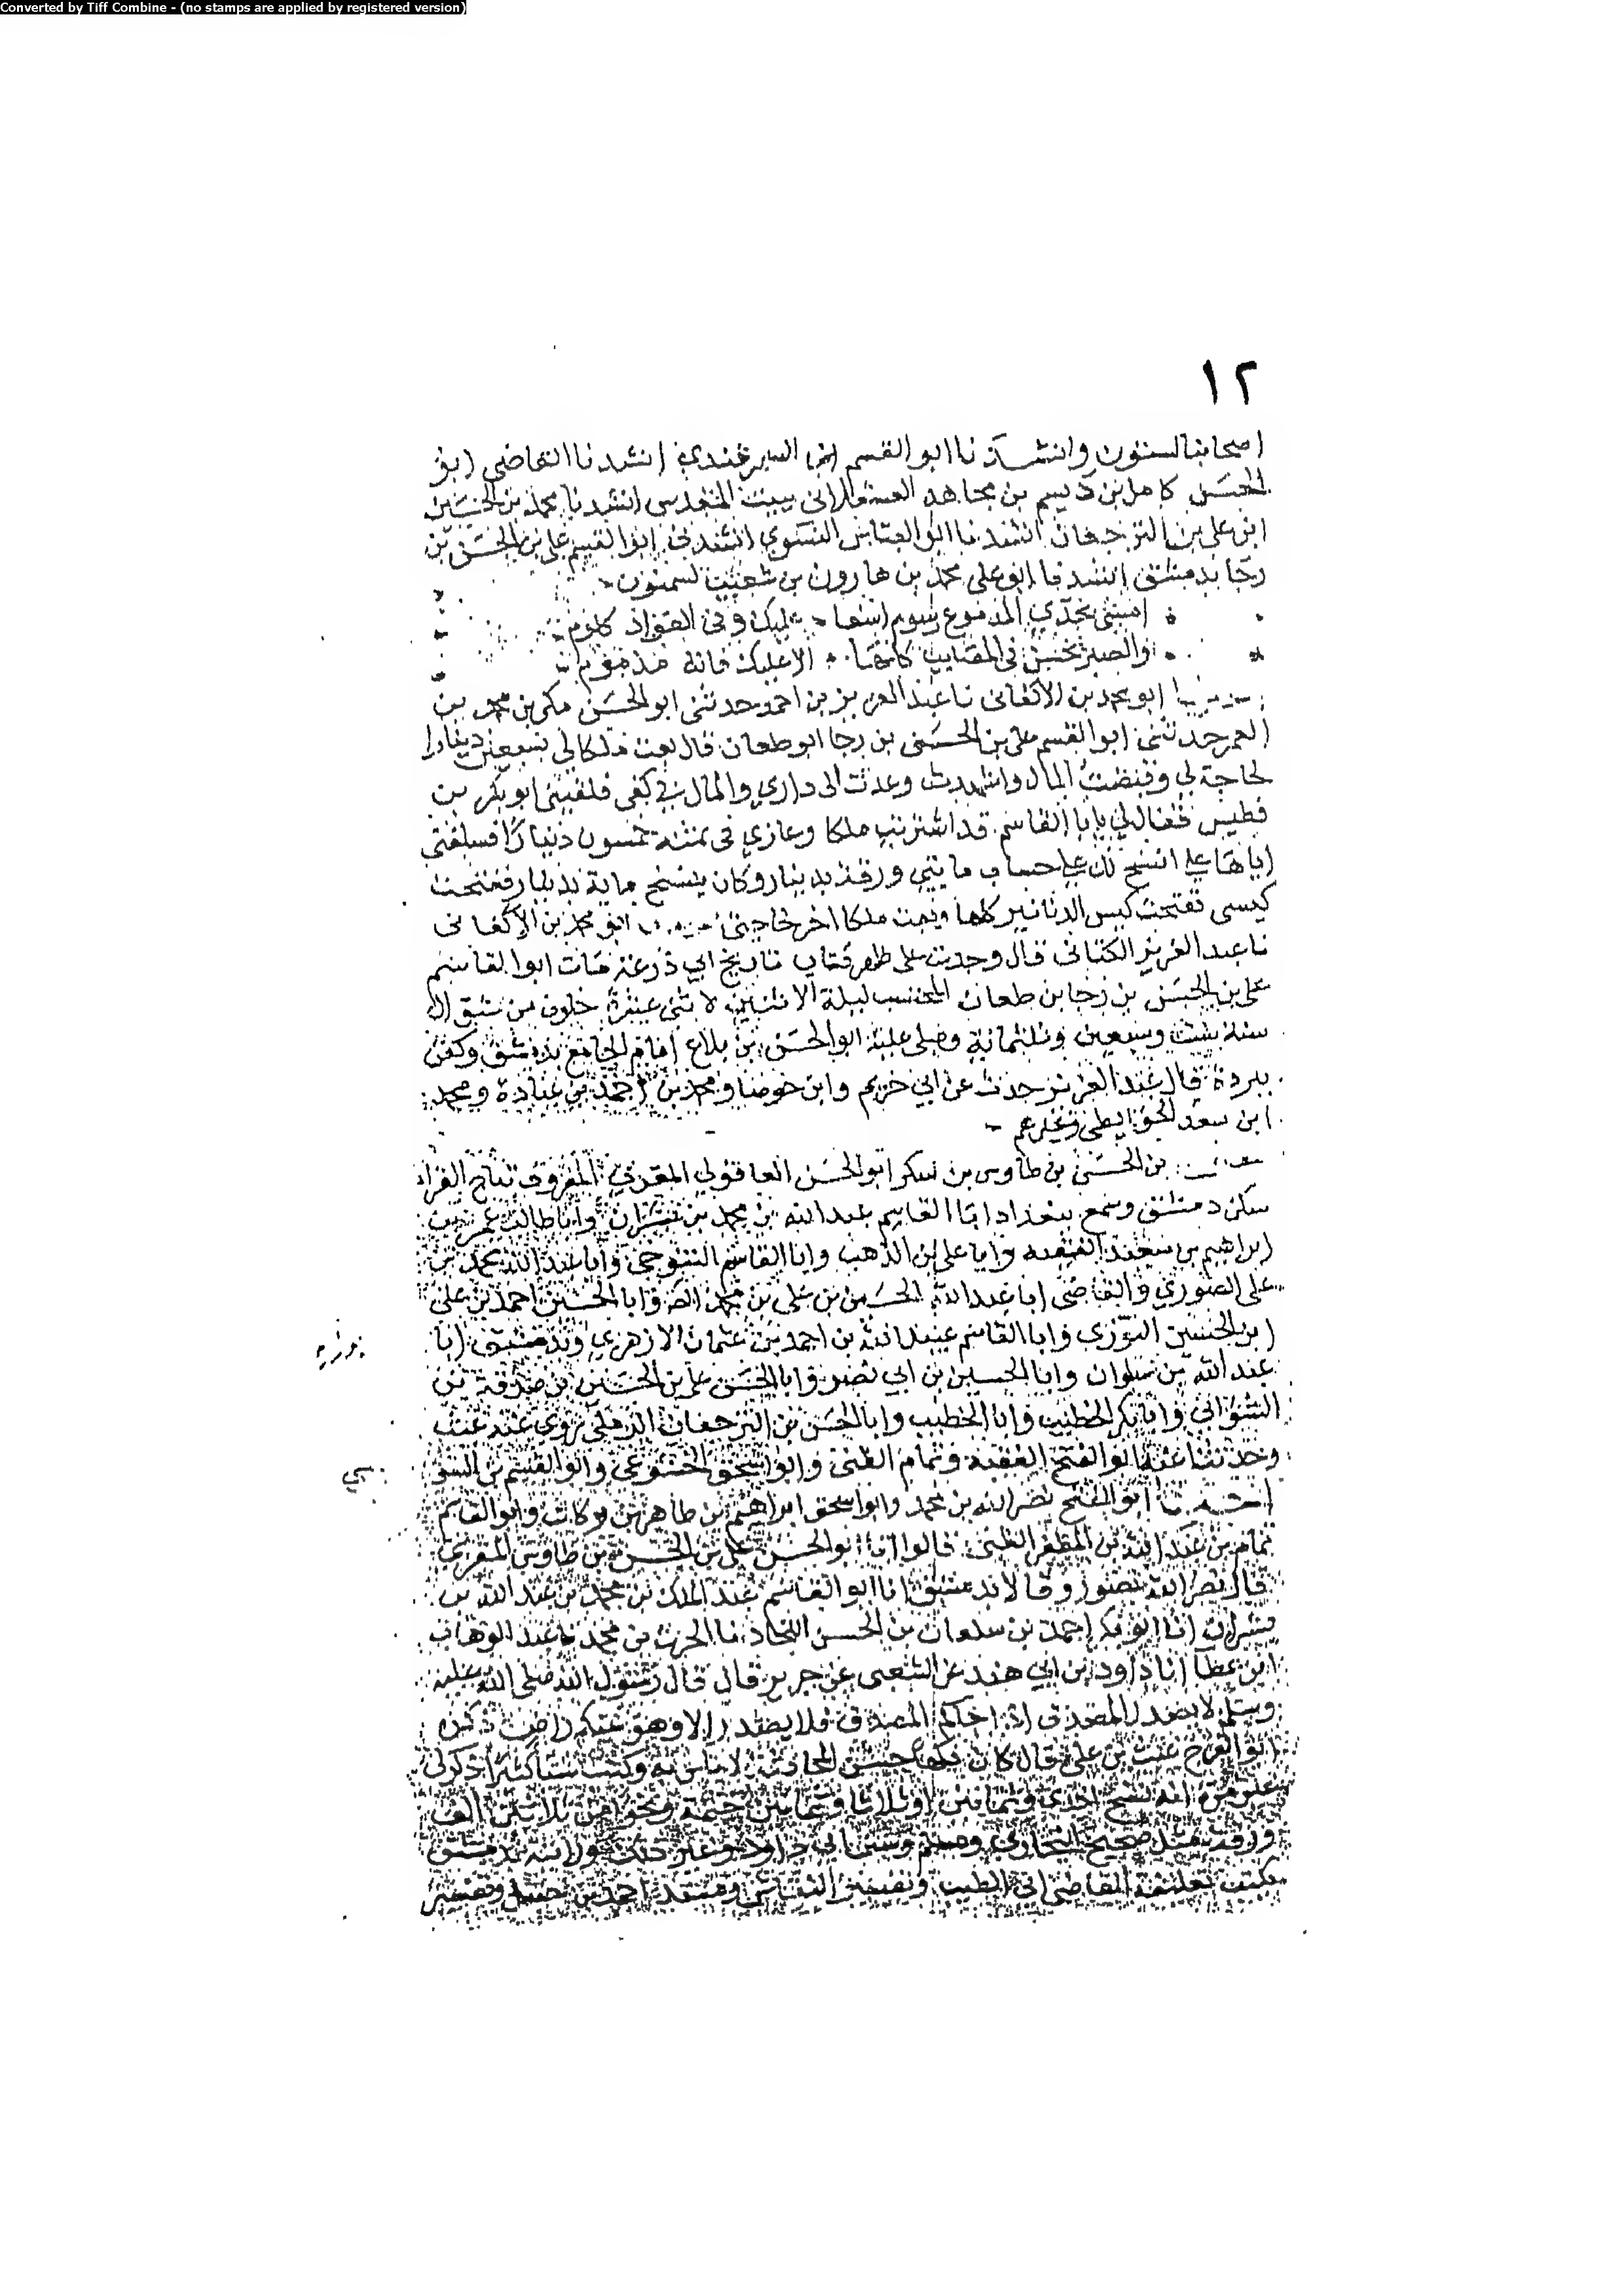 Converted by Tiff Combine - (no stamps are applied by registered version)
١٢
اصحابنا لسمنون وانشدنا ابو القسم ابن السمرقندي انشدنا القاضي ابو
الحسن كامل بن ديسم بن مجاهد العسقلاني ببيت المقدس انشدنا محمد بن الحسين
ابن علي بن الترجمان انشدنا ابو العباس النسوي انشدني ابو القسم علي بن الحسن بن
رجا بدمشق انشدنا ابو علي محمد بن هارون بن شعيب لسمنون
امسى بخدي الدموع رسوم اسفا عليك وفي الفؤاد كلوم
والصبر يحسن في المصايب كلها الا عليك فانه مذموم
ابو محمد بن الاكفاني نا عبد العزيز بن احمد حدثني ابو الحسن مكي بن محمد بن
الغمر حدثني ابو القسم علي بن الحسن بن رجا ابو طعان قال بعت ملكا لي بسبعين دينارا
لحاجة لي وقبضت المال واشهدت وعدت الى داري والمال في كفي فلقيني ابو بكر بن
فطيس فقال لي يابا القاسم قد اشتريت ملكا وعازني في ثمنه خمسون دينارا فسلفني
اياها على انسخ لك على حساب مايتي ورقة بدينار وكان ينسخ ماية بدينار ففتحت
كيسي ففتحت كيس الدنانير كلها وبعت ملكا اخر لحاجتي ابو محمد بن الاكفاني
نا عبد العزيز الكتاني قال وجدت على ظهر كتاب تاريخ ابي زرعة مات ابو القاسم
علي بن الحسن بن رجا بن طعان المحتسب ليلة الاثنين لاثني عشرة خلون من شوال
سنة ست وسبعين وثلثماية وصلى عليه ابو الحسن بن بلاغ امام الجامع بدمشق وكفن
ببردة قال عبد العزيز حدث عن ابي خزيم وابن جوصا ومحمد بن احمد بن عبادة ومحمد
ابن سعد الحوايطي وغيرهم
بن الحسن بن طاوس بن سكر ابو الحسن العاقولي المقرئ المعروف بتاج القرا
سكن دمشق وسمع ببغداد ابا القاسم عبد الملك بن محمد بن بشران وابا طالب عمر بن
ابراهيم بن سعيد الفقيه وابا علي بن المذهب وابا القاسم التنوخي وابا عبد الله محمد بن
علي الصوري والقاضي ابا عبد الله الحسين بن علي بن محمد وابا الحسين احمد بن علي
ابن الحسين التوزي وابا القاسم عبيد الله بن احمد بن عثمان الازهري وبدمشق ابا
عبد الله بن سلوان وابا الحسين بن ابي نصر وابا الحسن علي بن الحسين بن صدقة بن
الشرابي وابا بكر الخطيب وابا الحسن بن الترجمان الرملي روى عنه غيث
وحدثنا عنه ابو الفتح الفقيه وتمام الظني وابو اسحق الخشوعي وابو القسم بن السو
سي
ابو الفتح نصر الله بن محمد وابو اسحق ابراهيم بن طاهر بن بركات وابو القاسم
تمام بن عبد الله بن المظفر الظني قالوا انا ابو الحسن علي بن الحسن بن طاوس المقرئ
قال نصر الله بصور وقالا بدمشق انا ابو القاسم عبد الملك بن محمد بن عبد الله بن
بشران انا ابو بكر احمد بن سلمان بن الحسن النجاد نا الحرث بن محمد نا عبد الوهاب
ابن عطا انا داود بن ابي هند عن الشعبي عن جرير قال قال رسول الله صلى الله عليه
وسلم لا يصدر المصدق اذا جاكم المصدق فلا يصدر الا وهو عنكم راض ذكره
ابو الفرج غيث بن علي قال كان حسن لا باس به وكتب شيا كثيرا ذكر لي
غير مرة انه نسخ احدى وثمانين او ثلاثا وثمانين ختمة ونحوا من ثلاثين الف
ورقة مثل صحيح البخاري ومسلم وسنن ابي داود وغير ذلك
يكتب تعليقة القاضي ابي الطيب وتفسير النقاش ومسند احمد بن حنبل وتفسير